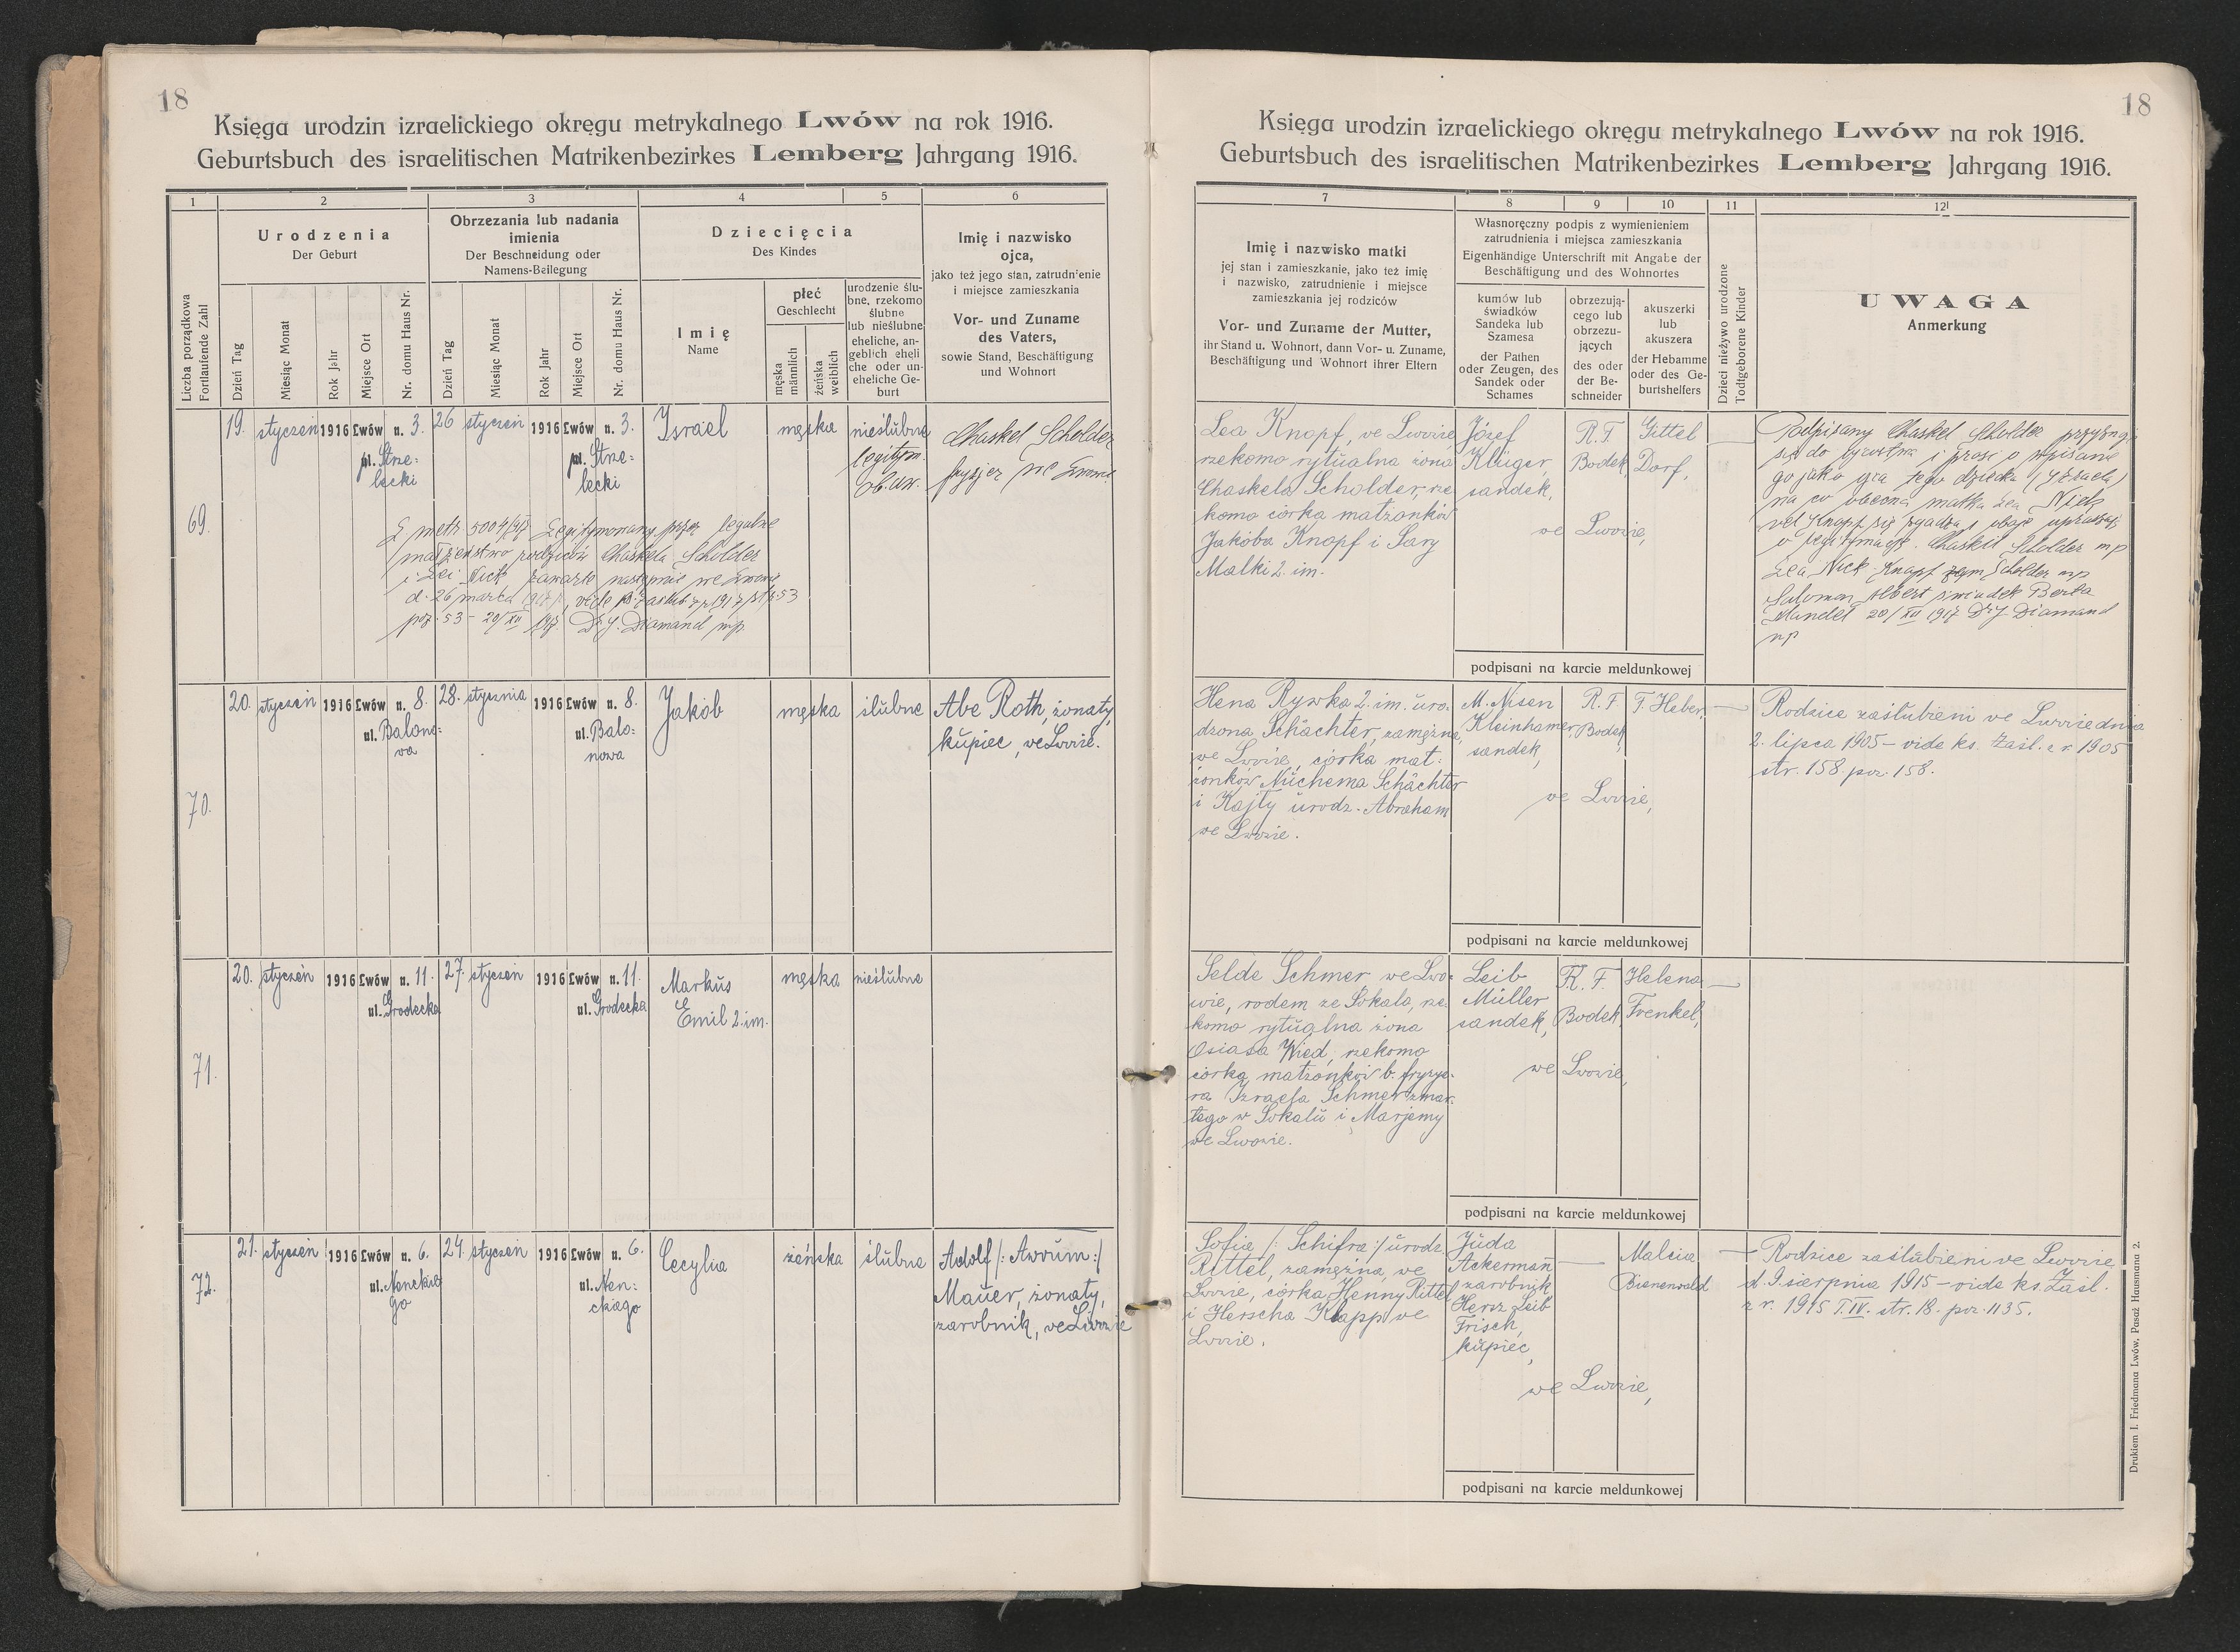 18
Księga urodzin izraelickiego okręgu metrykalnego Lwów na rok 1916.
Geburtsbuch des israelitischen Matrikenbezirkes Lemberg Jahrgang 1916.
1 2 3 4 5 6
Liczba porządkowa
Fortlaufende Zahl
Urodzenia
Der Geburt
Dzień Tag
Miesiąc Monat
Rok Jahr
Miejsce Ort
Nr. domu Haus Nr.
Obrzezania lub nadania
imienia
Der Beschneidung oder
Namens-Beilegung
Dzień Tag
Miesiąc Monat
Rok Jahr
Miejsce Ort
Nr. domu Haus Nr.
Dziecięcia
Des Kindes
Imię
Name
płeć
Geschlecht
męska
männlich
żeńska
weiblich
urodzenie ślu-
bne, rzekomo
ślubne
lub nieślubne
eheliche, an-
geblich eheli
che oder un-
eheliche Ge-
burt
Imię i nazwisko
ojca,
jako też jego stan, zatrudnienie
i miejsce zamieszkania
Vor- und Zuname
des Vaters,
sowie Stand, Beschäftigung
und Wohnort
69.
19. styczeń 1916 Lwów n. 3.
pl. Strze-
lecki
26 styczeń 1916 Lwów n. 3.
pl. Strze-
lecki
Israel
męska
nieślubne
legitym.
ob. uw.
Chaskel Scholder
fryzjer we Lwowie
L metr 5004/917 Legitymowany przez legalne
małżeństwo rodziców Chaskela Scholder
i Lei Nick zawarte następnie we Lwowie
d. 26 marca 1917 r., vide ks. zaślub. z r 1917 str 53
poz. 53 - 20/XII 1917. Dr J. Diamand mp
70.
20. styczeń 1916 Lwów n. 8.
ul. Balono-
wa
28. stycznia 1916 Lwów n. 8.
ul. Balo-
nowa
Jakób
męska
ślubne
Abe Roth, żonaty,
kupiec, we Lwowie.
71.
20. styczeń 1916 Lwów n. 11.
ul. Grodecka
27. styczeń 1916 Lwów n. 11.
ul. Grodecka
Markus
Emil 2. im.
męska
nieślubne
72.
21. styczeń 1916 Lwów n. 6.
ul. Nenckie
go
24. styczeń 1916 Lwów n. 6.
ul. Nen-
ckiego
Cecylia
żeńska
ślubne
Adolf /: Awrum :/
Mauer, żonaty,
zarobnik, we Lwowie
18
Księga urodzin izraelickiego okręgu metrykalnego Lwów na rok 1916.
Geburtsbuch des israelitischen Matrikenbezirkes Lemberg Jahrgang 1916.
7 8 9 10 11 12
Imię i nazwisko matki
jej stan i zamieszkanie, jako też imię
i nazwisko, zatrudnienie i miejsce
zamieszkania jej rodziców
Vor- und Zuname der Mutter,
ihr Stand u. Wohnort, dann Vor- u. Zuname,
Beschäftigung und Wohnort ihrer Eltern
Własnoręczny podpis z wymienieniem
zatrudnienia i miejsca zamieszkania
Eigenhändige Unterschrift mit Angabe der
Beschäftigung und des Wohnortes
kumów lub
świadków
Sandeka lub
Szamesa
der Pathen
oder Zeugen, des
Sandek oder
Schames
obrzezują-
cego lub
obrzezu-
jących
des oder
der Be-
schneider
akuszerki
lub
akuszera
der Hebamme
oder des Ge-
burtshelfers
Dzieci nieżywo urodzone
Todtgeborene Kinder
UWAGA
Anmerkung
Lea Knopf, we Lwowie,
rzekomo rytualna żona
Chaskela Scholder, rze
komo córka małżonków
Jakóba Knopf i Sary
Malki 2. im.
Józef
Klüger,
sandek,
R. F.
Bodek,
Gittel
Dorf,
we Lwowie,
Podpisany Chaskel Scholder przyznaje
się do ojcostwa i prosi o wpisanie
go jako ojca tego dziecka (Izraela)
na co obecna matka Lea Nick
vel Knopf się zgadza i oboje upraszają
o legitymację. Chaskel Scholder mp
Lea Nick Knopf zam Scholder mp
Salomon Albert świadek Berka
Mandel 20/XII 1917 Dr J Diamand
mp
podpisani na karcie meldunkowej
Hena Rywka 2. im. uro-
dzona Schächter, zamężna,
we Lwowie, córka mał-
żonków Nuchema Schächter
i Kajty urodz. Abraham
we Lwowie.
M. Nisen
Kleinhamer,
sandek,
R. F.
Bodek
F. Heber,
we Lwowie,
Rodzice zaślubieni we Lwowie dnia
2. lipca 1905 – vide ks. Zaśl. z r. 1905
str. 158. poz. 158.
podpisani na karcie meldunkowej
Selde Schmer we Lwo-
wie, rodem ze Sokala, rze
komo rytualna żona
Osiasa Wied, rzekomo
córka małżonków b. fryzje-
ra Izraela Schmer zmar-
łego w Sokalu i Marjemy
we Lwowie.
Leib
Müller
sandek,
R. F.
Bodek,
Helena
Frenkel,
we Lwowie,
podpisani na karcie meldunkowej
Sofia /: Schifra :/ urodz.
Rittel, zamężna, we
Lwowie, córka Henny Rittel
i Herscha Klapp we
Lwowie.
Juda
Ackerman
zarobnik
Hersz Leib
Frisch,
kupiec,
Malcia
Bienenwald
we Lwowie,
Rodzice zaślubieni we Lwowie
d. 9 sierpnia 1915 – vide ks. Zaśl.
z r. 1915 T. IV. str. 18. poz. 1135.
podpisani na karcie meldunkowej
Drukiem I. Friedmana Lwów, Pasaż Hausmana 2.